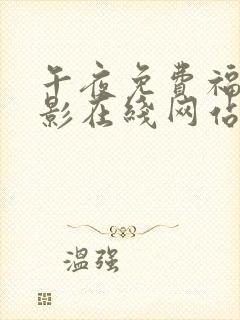 午夜免费福
影在线网佔
温强